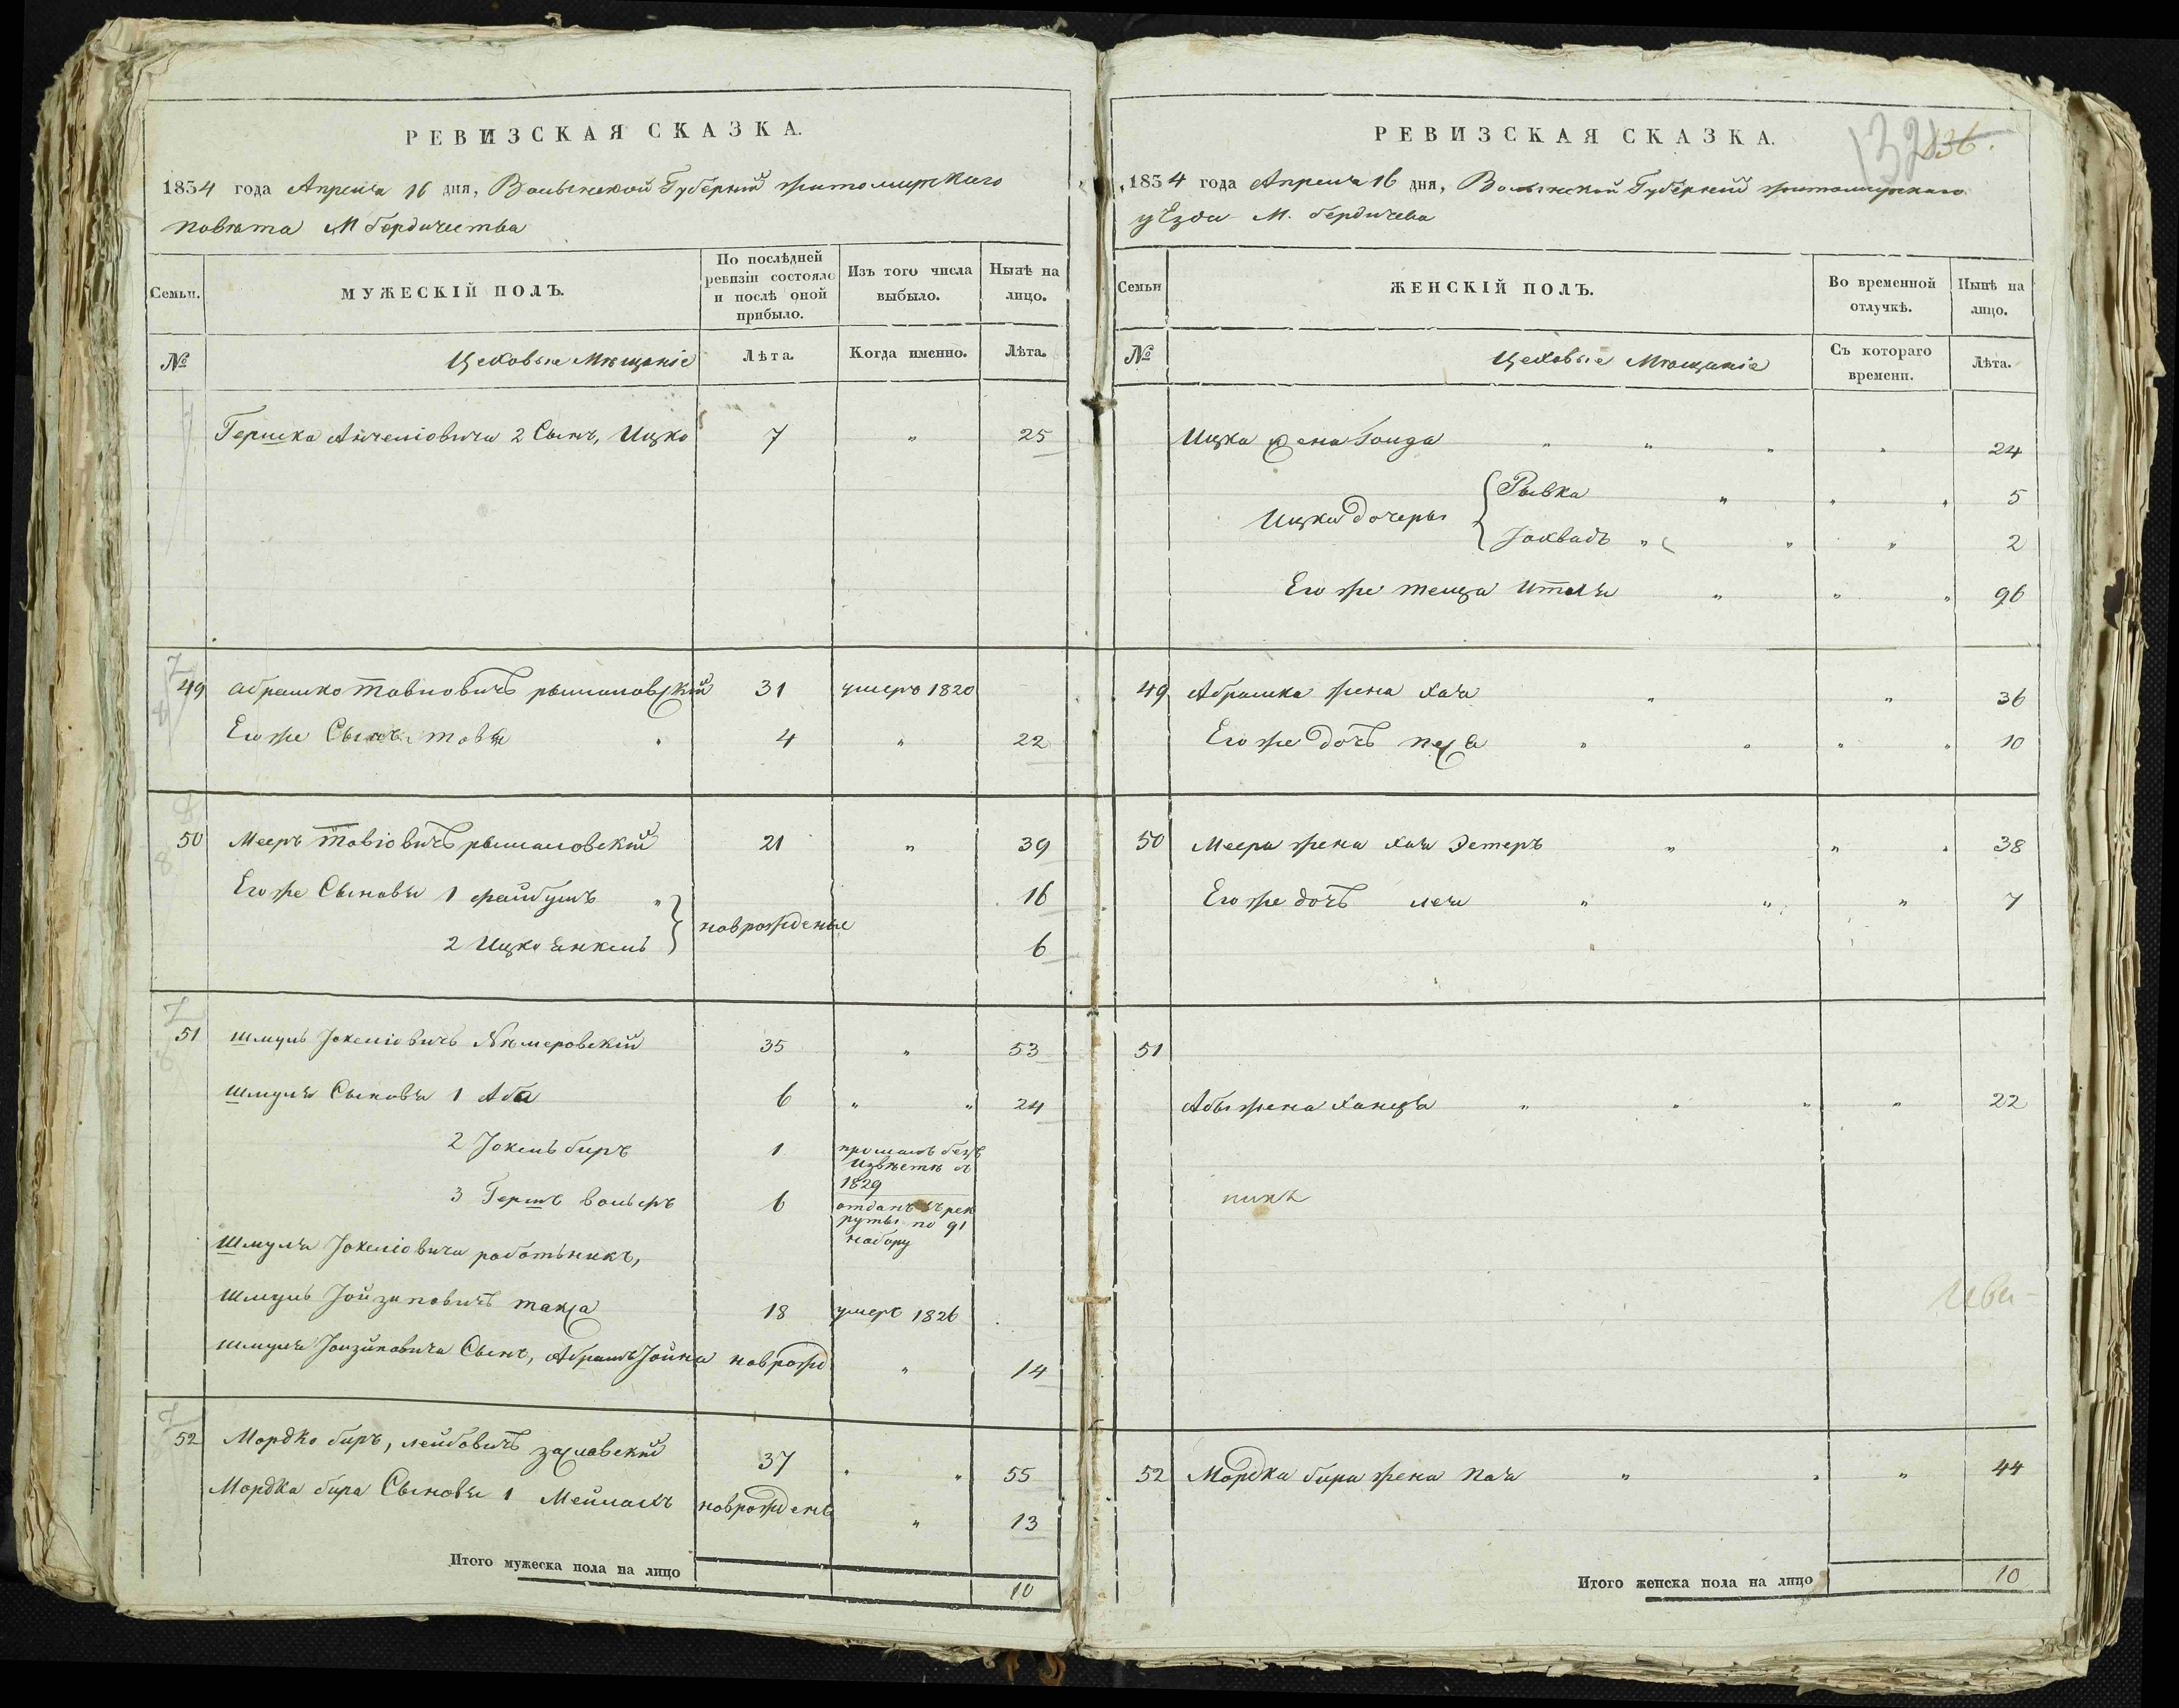 РЕВИЗСКАЯ СКАЗКА.
1834 года Апреля 16 дня, Волынской Губернiи житомирскаго
повѣта М Бердичества
Семьи.
МУЖЕСКІЙ ПОЛЪ.
По послѣдней ревизіи состояло и послѣ оной прибыло.
Изъ того числа выбыло.
Нынѣ на лицо.
№
Цеховые Мѣщаніе
Лѣта.
Когда именно.
Лѣта.
Гершка Анчеліовича 2 Сынъ, Ицко 7 " 25
49 Абрашко Товіовичъ рымаловскій 31 умеръ 1820
Его же Сынъ товія 4 " 22
50 Мееръ Товіовичъ рымаловскій 21 " 39
Его же Сыновья 1 файбушъ " 16
новрожденые
2 Ицко Янкель 6
51 Шмуль Іокеліовичъ Нѣмеровскій 35 " 53
Шмуля Сыновья 1 Аба 6 " " 24
2 Іокель беръ 1 пропалъ безъ
извѣстн въ
1829
3 Гершъ вольфъ 6 отданъ въ рек
руты по 91
набору
Шмуля Іокеліовича работникъ,
Шмуль 18 умеръ 1826
Шмуля Сынъ, Абрамъ Іойна новрожд " 14
52 Мордко беръ, лейбовичъ заславскій 37 " " 55
Мордка бера Сыновья 1 новрожденъ " 13
Итого мужеска пола на лицо 10
РЕВИЗСКАЯ СКАЗКА.
132
136.
1834 года Апреля 16 дня, Волынской Губерніи житомирскаго
уѣзда М. бердичева
Семьи
ЖЕНСКІЙ ПОЛЪ.
Во временной отлучкѣ.
Нынѣ на лицо.
№
Цеховые Мѣщаніе
Съ котораго времени.
Лѣта.
Ицка жена " " " " 24
Рывка " " " 5
Ицка дочеры
Іохвадъ " " " 2
Его же теща Итля " " " 96
49 Абрашка жена хая " " 36
Его же дочь песя " " " " 10
50 Меера жена хая Эстеръ " " " 38
Его же дочь лея " " " 7
51
Абы жена ханця " " " " 22
52 Мордка бера жена пая " " " 44
Итого женска пола на лицо 10